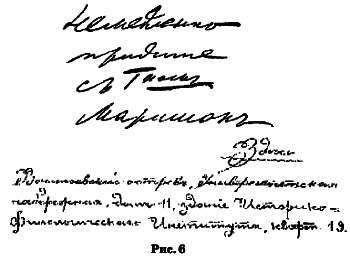 Немедленно
придите
съ
Здѣсь
Васильевскій островъ, Университетская
набережная, домъ 11, зданіе Историко-
Филологическаго Института, кварт. 19.
Рис. 6